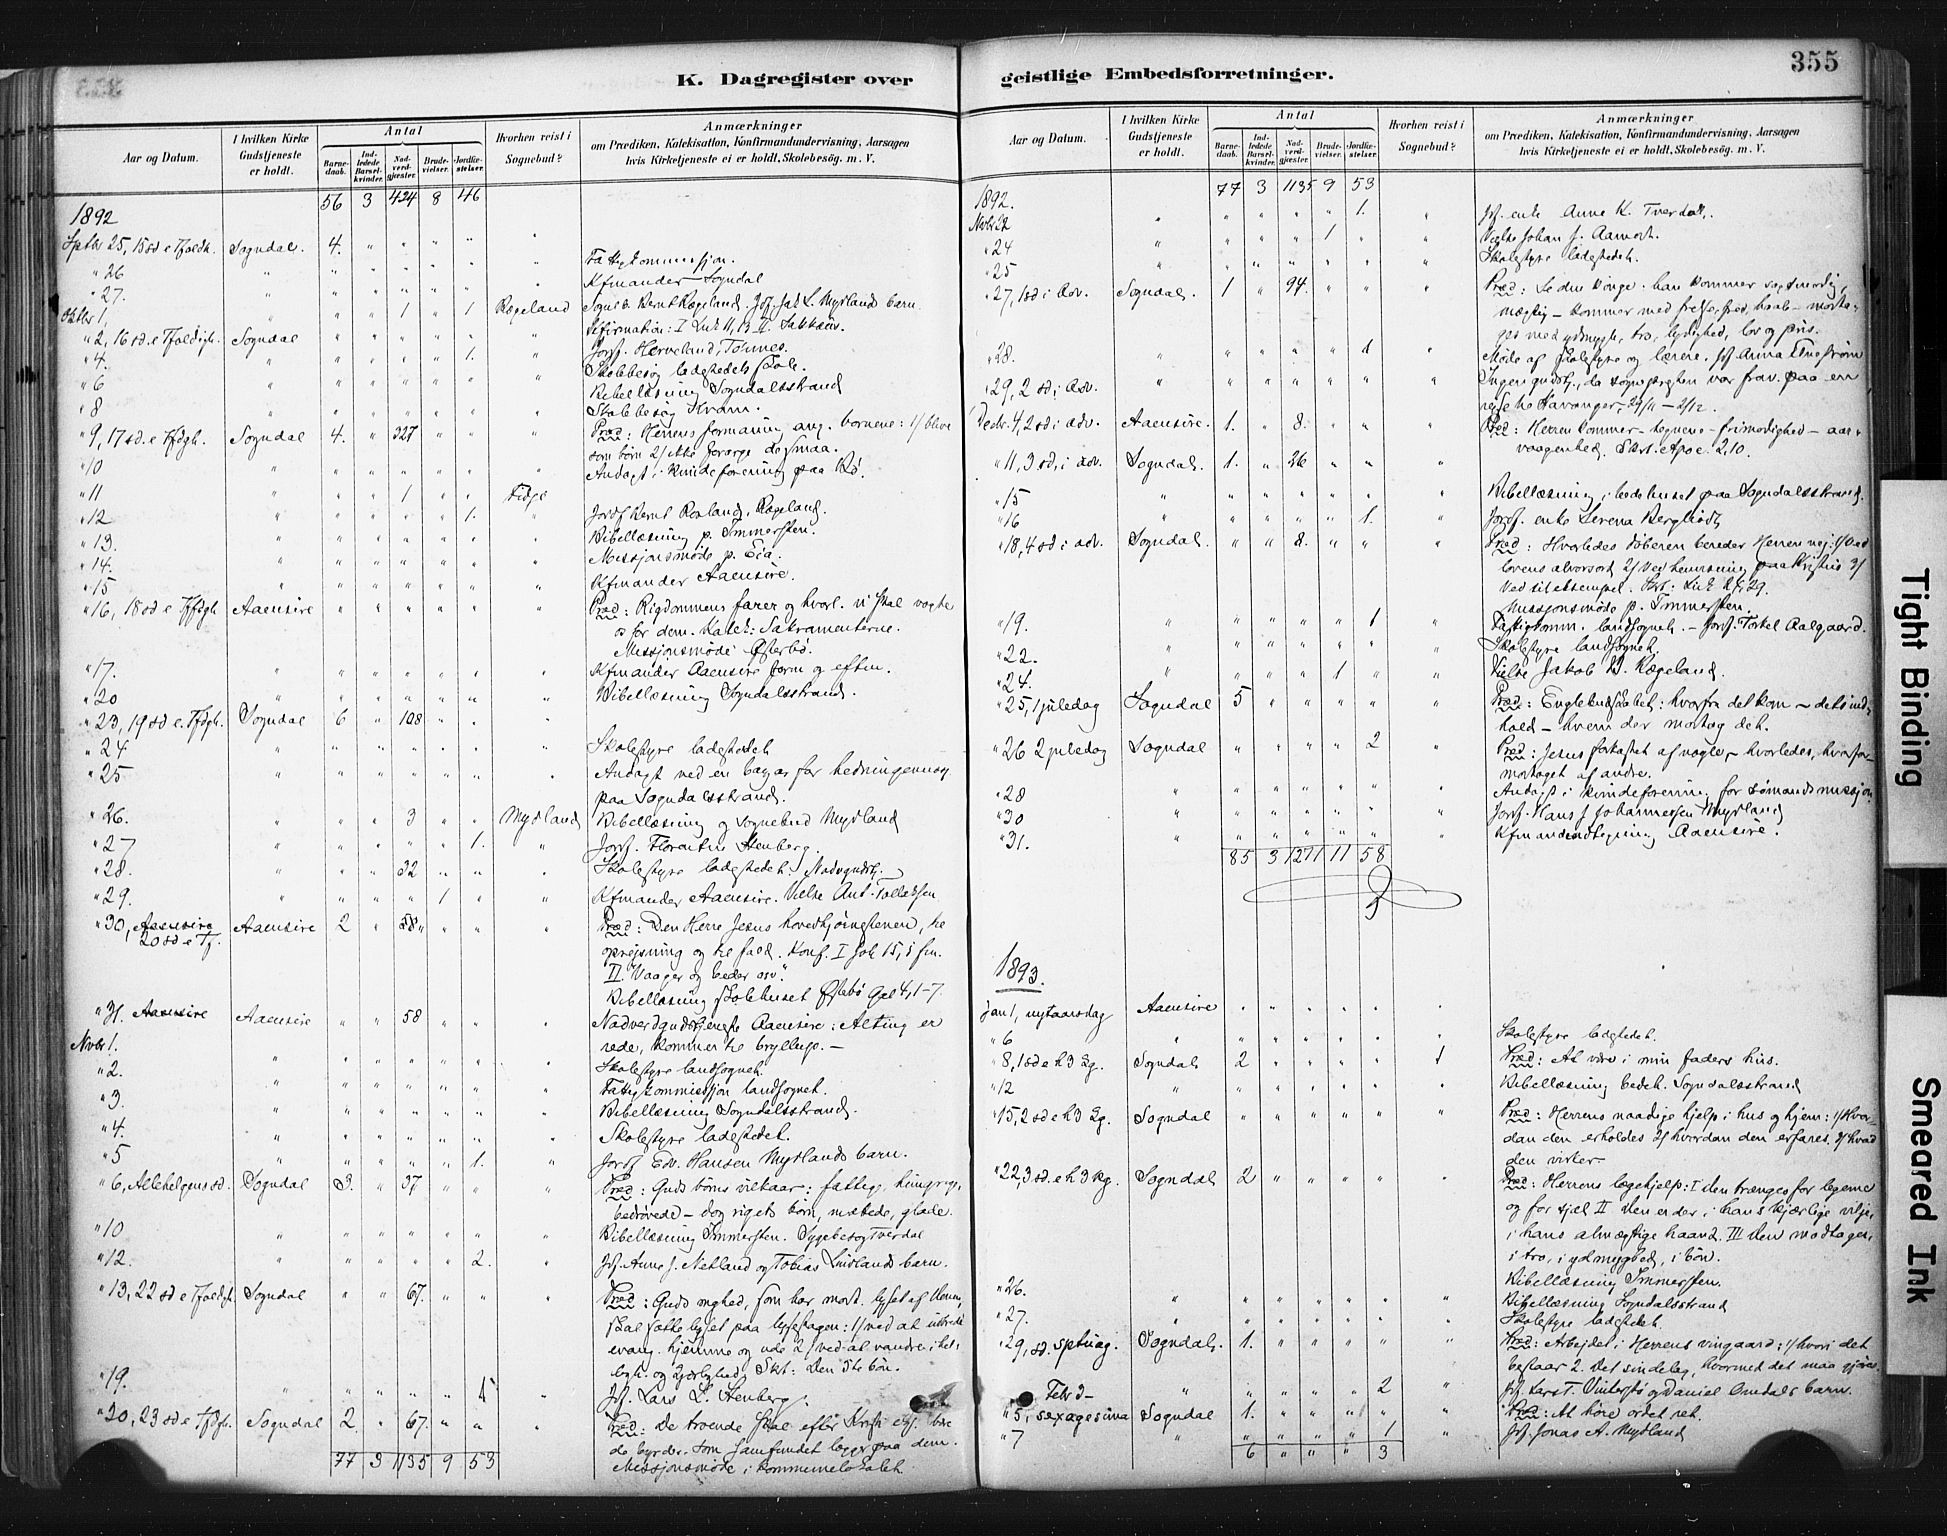 K. Dagregister over
Aar og Datum.
I hvilken Kirke Gudstjeneste er holdt.
Antal
Barnedaab.
Indledede Barselkvinder.
Nadverdgjæster.
Brudevielser.
Jordfæstelser.
Hvorhen reist i Sognebud?
Anmærkninger
om Prædiken, Katekisation, Konfirmandundervisning, Aarsagen
hvis Kirketjeneste ei er holdt, Skolebesøg. m. V.
56 3 424 8 46
1892
Sptbr 25, 15 sd e Tfoldh. Sogndal. 4. " " " " "
" 26 " " " " " " " Fattigkommissjon.
" 27. " " " " " " " Kfmander Sogndal
Oktbr 1, " " " 1 " 1 Rægeland Sogneb. Bernt Rægeland. Jof. Jak L. Mydlands barn
" 2, 16 sd. e Tfoldigh. Sogndal " " " " " " Kfirmation: I Luk 11,13 II
" 4. " " " " " 1. " Jordf. Herveland, Tønnes.
" 6 " " " " " " " Skolebesøg ladestedets skole.
Bibellæsning Sogndalsstrand
" 8 " " " " " " " Skolebesøg Kvam.
" 9, 17 sd. e Tfdgh. Sogndal 4. " 327 " " " Præd: Herrens formaning ang. børnene: 1/ blive
som børn 2/ ikke forarge de smaa.
" 10 " " " " " " " Andagt i kvindeforening paa Bø.
" 11 " " " 1 " " Fidje
" 12 " " " " " 1. " Jordf Bernt Roaland, Rægeland.
" 13. " " " " " " " Bibellæsning p. Immersten.
" 14. " " " " " " " Missjonsmøde p. Eia.
" 15 " " " " " " " Kfmander Aaensire.
" 16, 18 sd e Tfdgh Aaensire " " " " " " Præd: Rigdommens farer og hvorl. vi skal vogte
os for dem. Katek: Sakramenterne.
Missjonsmøde Østerbø.
" 17. " " " " " " " Kfmander Aaensire form og eftm.
" 20 " " " " " " " Bibellæsning Sogndalsstrand.
" 23, 19 sd e. Tfdgh. Sogndal 6 " 108 " " "
" 24 " " " " " " " Skolestyre ladestedet
" 25 " " " " " " " Andagt ved en bazar for hedningemiss.
paa Sogndalsstrand.
" 26. " " " 3 " " Mydland Bibellæsning og sognebud Mydland
" 27 " " " " " 1. " Jordf. Florentin Stenberg.
" 28. " " " 32 " " " Skolestyre ladestedet. Nadvgudstj.
" 29. " " " " 1 " " Kfmander Aaensire. Vielse Ant. Tollaksen
" 30, Aaensire 20 sd e Tf. Aaensire 2 " 58 " " " Præd: Den Herre Jesus hovedhjørnestenen, til
oprejsning og til fald. Konf. I Joh 15,5 fm.
II. Vaager og beder osv.
Bibellæsning skolehuset Østebø Gal 4,1-7.
" 31. Aaensire Aaensire " " 58 " " " Nadverdgudstjeneste Aaensire: Alting er
rede, kommer til bryllup. –
Nvbr 1. " " " " " " " Skolestyre landsognet.
" 2. " " " " " " " Fattigkommissjon landsognet.
" 3. " " " " " " " Bibellæsning Sogndalsstrand.
" 4. " " " " " " " Skolestyre ladestedet.
" 5 " " " " " 1. " Jordf Edv. Hansen Mydlands barn.
" 6, Allehelgens sd. Sogndal 3. " 37 " " " Præd: Guds børns vilkaar: fattige, hungrige,
bedrøvede – dog rigets børn, mættede, glade.
" 10 " " " " " " " Bibellæsning Immersten. Sygebesøg Tverdal
" 12. " " " " " 2. " Jof. Anne J. Netland og Tobias Lindlands barn.
" 13, 22 sd e Tfoldgh. Sogndal " " 67. " " " Præd: Guds mghed, som har mort. lyset af Herren,
skal sætte lyset paa lysestagen: 1/ ved at udbrede
evang. hjemme og ude 2/ ved at vandre i hel-
ligh. og kjærlighed Skt: Den 5te bøn.
" 19. " " " " " 1 " Jof. Lars L. Stenberg.
" 20, 23 sd e Tfdgh. Sogndal 2. " 67. " " Præd: De troende skal efter Kristi eks. bære
de byrder, som samfundet lægger paa dem.
Missjonsmøde i kommunelokalet.
77 3 1135 9 53
geistlige Embedsforretninger.
355
Aar og Datum.
I hvilken Kirke Gudstjeneste er holdt.
Antal
Barnedaab.
Indledede Barselkvinder.
Nadverdgjæster.
Brudevielser.
Jordfæstelser.
Hvorhen reist i Sognebud?
Anmærkninger
om Prædiken, Katekisation, Konfirmandundervisning, Aarsagen
hvis Kirketjeneste ei er holdt, Skolebesøg. m. V.
77 3 1135 9 53
1892.
Nvbr 22 " " " " " 1. " Jof. enke Anne K. Tverdal.
" 24 " " " " 1 " " Vielse Johan J. Aamodt.
" 25 " " " " " " " Skolestyre ladestedet.
" 27, 1 sd i Adv. Sogndal. 1 " 94. " " " Præd: Se din konge: han kommer sagtmodig,
mægtig – kommer med frelse, fred, haab – morta-
ges med ydmygh., tro, lydighed, lov og pris.
" 28. " " " " " 1 " Møde af skolestyre og lærere. Jof Anna
" 29, 2 sd i Adv. " " " " " " " Ingen gudstj., da sognepræsten var frav. paa en
rejse til Stavanger, 29/11 – 2/12.
Decbr. 4, 2 sd i adv. Aaensire. 1. " 8. " " " Præd: Herren kommer – tegnene – frimodighed – aar-
vaagenhed. Skrt. Apoc. 2,10.
" 11, 3 sd, i adv. Sogndal. 1. " 26 " " "
" 15 " " " " " " " Bibellæsning i bedehuset paa Sogndalsstrand.
" 16 " " " " " 1. " Jordf. enke Serena Berglyd
" 18, 4 sd i adv. Sogndal. " " 8. " " " Præd: Hvorledes døberen bereder Herrens vej: 1/ Ved
lovens alvorsord 2/ Ved henvisning paa Kristus 3/
Ved sit eksempel. Skt: Luk 2,29.
Missjonsmøde p. Immersten.
" 19. " " " " " 1 " Fattigkomm. landsognet. – Jordf. Torkel Aalgaard.
" 22. " " " " " " " Skolestyre landsognet.
" 24. " " " " 1 " " Vielse Jakob B. Rægeland.
" 25, 1 juledag Sogndal 5 " " " " " Præd: Englebudskabet: hvorfra det kom – dets ind-
hold – hvem der mortog det.
" 26 2 juledag Sogndal " " " " 2 " Præd: Jesus forkastet af nogle – hvorledes, hvorfor –
mortaget af andre.
" 28 " " " " " " " Andagt i kvindeforening for sømandsmissjon.
" 30 " " " " " " " Jordf. Hans J Johannessen Mydland
" 31. " " " " " " " Kfmandindtegning Aaensire.
85 3 1271 11 58
5
1893.
Jan 1, nytaarsdag Aaensire " " " " " "
" 6 " " " " " " " Skolestyre ladestedet.
" 8, 1 sd e h 3 Kg. Sogndal 2 " " " " 1 Præd: At være i min faders hus.
" 12 " " " " " " " Bibellæsning bedeh. Sogndalsstrand
" 15, 2 sd e h 3 Kg. Sogndal " " " " " " Præd: Herrens naadige hjelp i hus og hjem: 1/ Hvor-
dan den erholdes 2/ hvordan den erfares. 3/ hvad
den virker.
" 22, 3 sd. e h 3 Kg. Sogndal 2 " " " " " Præd: Herrens lægehjelp: I Den trænges for legeme
og for sjæl II Den er der, i hans kjærlige vilje,
i hans almægtige haand. III Den modtages
i tro, i ydmyghed, i bøn.
" 26. " " " " " " " Bibellæsning Immersten.
" 27. " " " " " " " Bibellæsning Sogndalsstrand
Skolestyre ladestedet.
" 29, sd. sptuag. Sogndal. 1. " " " " " Præd: Arbejdet i Herrens vingaard: 1/ hvori det
bestaar 2. Det sindelag, hvormed det maa gjøres.
Febr 3 – " " " " " 2 " Jof. Lars T. Vinterstø og Daniel Omdals barn.
" 5, sexagesima Sogndal 1. " " " " " Præd: At høre ordet ret.
" 7 " " " " " 1 " Jof. Jonas A. Mydland
6 " " " 3
Tight Binding
Smeared Ink